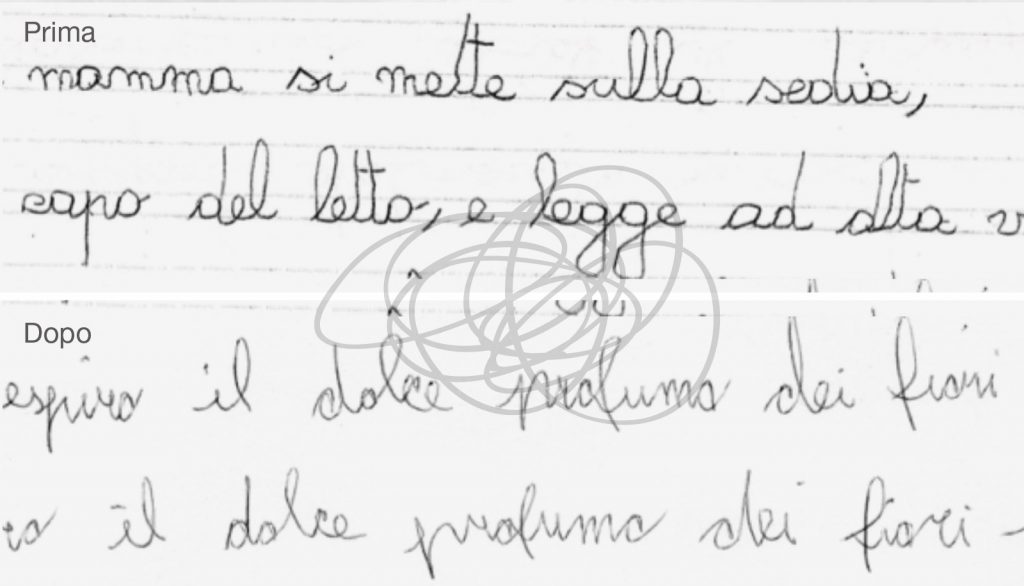 Prima
mamma si mette sulla sedia,
capo del letto, e legge ad alta v
Dopo
espiro il dolce profumo dei fiori
ro il dolce profumo dei fiori -